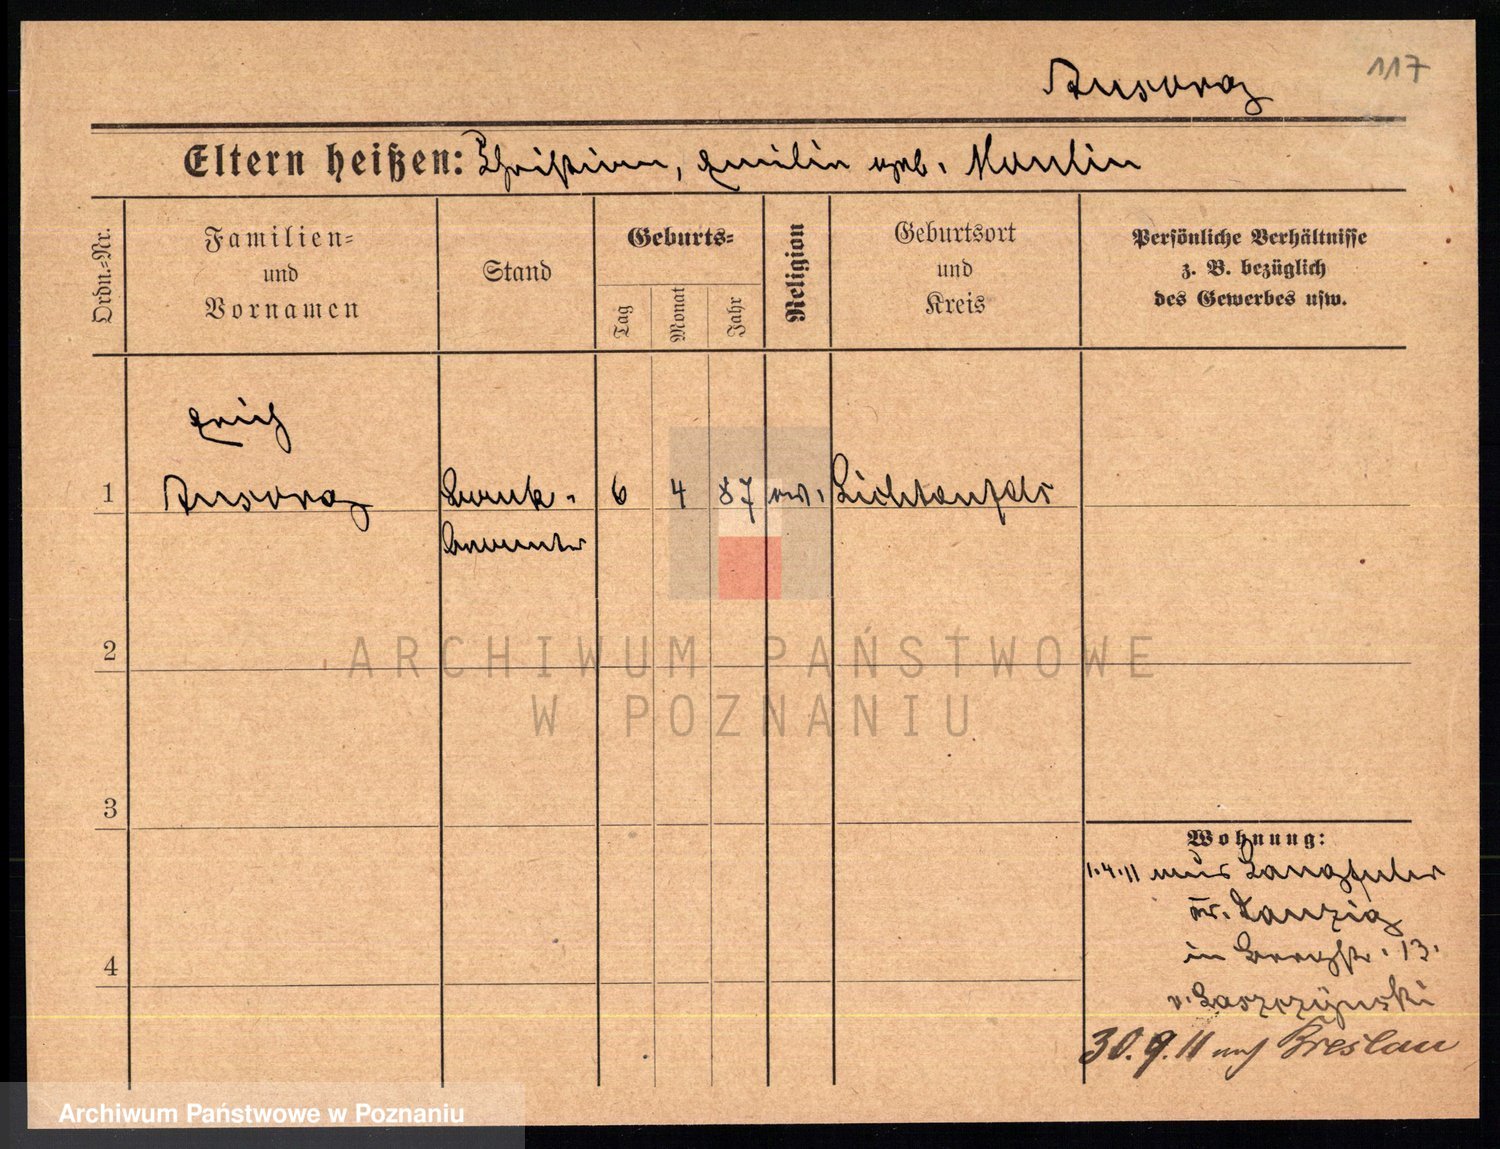 Ansorg
117
Eltern heißen: Christian, Emilie geb. Maulin
Ordn.-Nr.
Familien-
und
Vornamen
Stand
Geburts-
Tag
Monat
Jahr
Religion
Geburtsort
und
Kreis
Persönliche Verhältnisse
z. B. bezüglich
des Gewerbes usw.
Erich
1 Ansorg Bank- 6 4 87 ev. Lichtenfels
beamter
2
3
4
Wohnung:
1.4.11 aus Langfuhr
Kr. Danzig
in Bergstr. 13.
v. Laszczynski
30.9.11 nach Breslau
ARCHIWUM PAŃSTWOWE
W POZNANIU
Archiwum Państwowe w Poznaniu